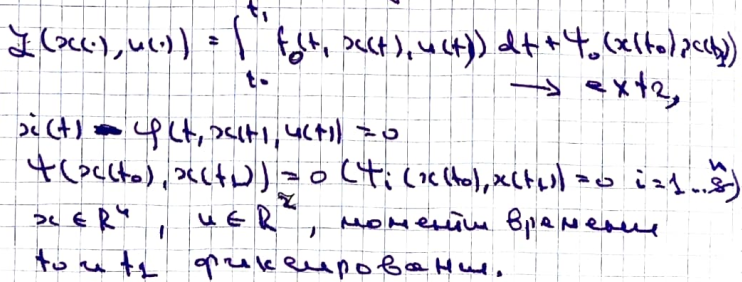 J(x(·), u(·)) = ∫_{t₀}^{t₁} f₀(t, x(t), u(t)) dt + ψ₀(x(t₀), x(t₁))
→ extr,
ẋ(t) - φ(t, x(t), u(t)) = 0
ψ(x(t₀), x(t₁)) = 0 (ψᵢ(x(t₀), x(t₁)) = 0 i = 1...s)
x ∈ Rⁿ, u ∈ Rʳ, моменты времени
t₀ и t₁ фиксированы.